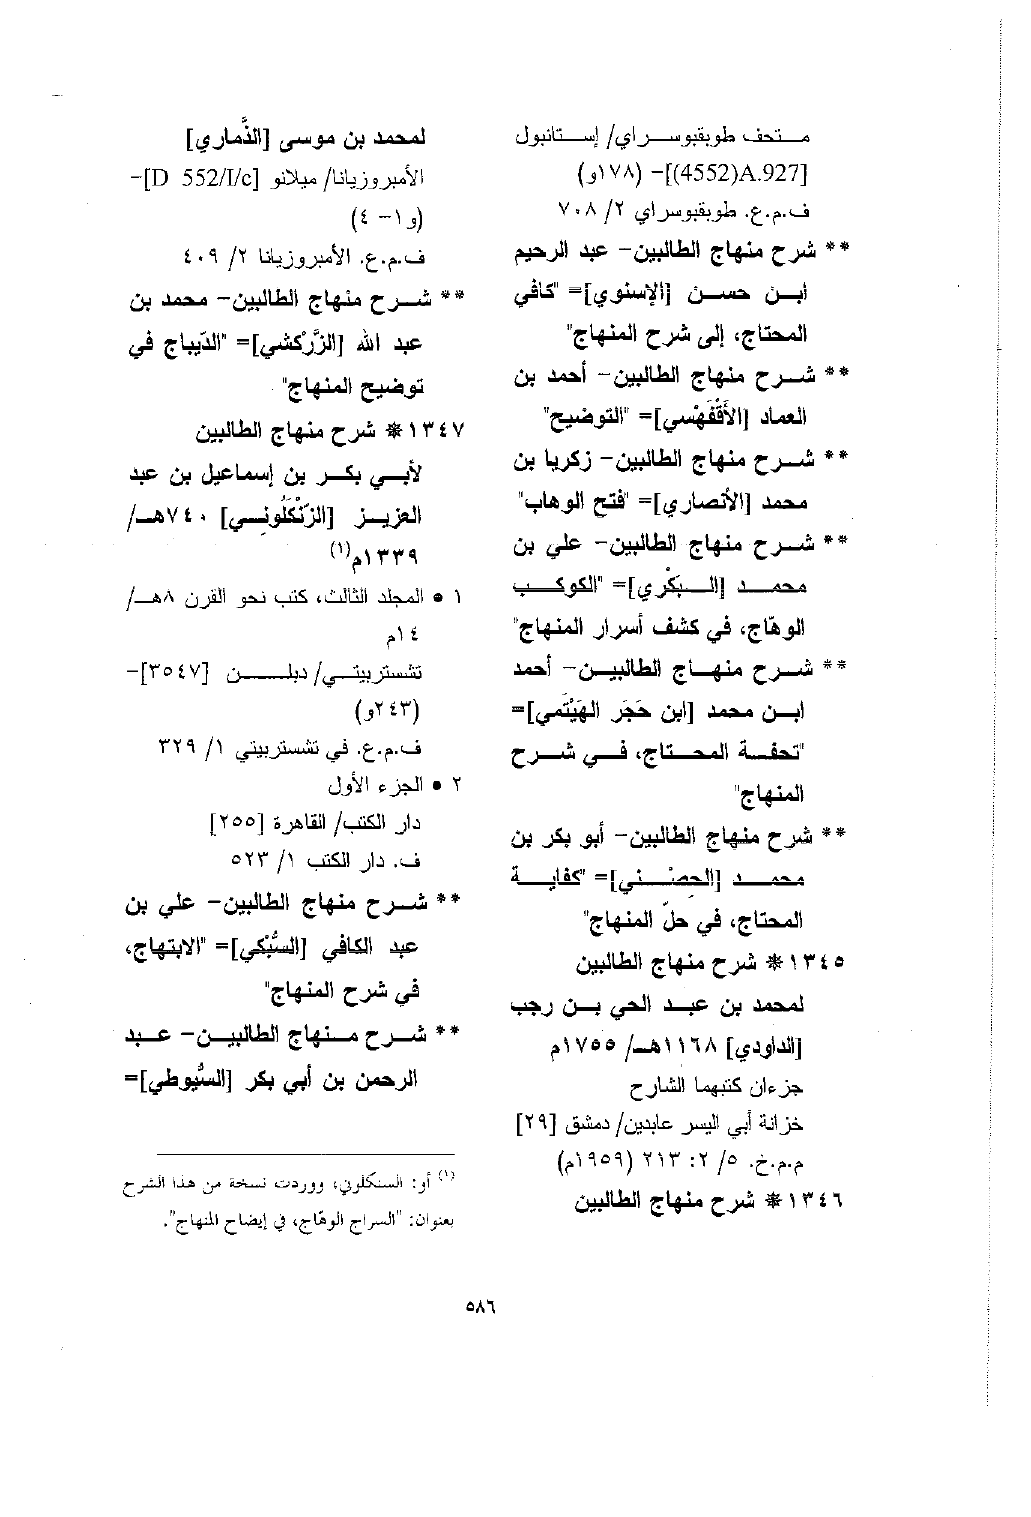 متحف طوبقبوسراي/ إستانبول
[A.927(4552)]- (١٧٨و)
ف.م.ع. طوبقبوسراي ٢/ ٧٠٨
** شرح منهاج الطالبين- عبد الرحيم
ابن حسن [الإسنوي]= "كافي
المحتاج، إلى شرح المنهاج"
** شرح منهاج الطالبين- أحمد بن
العماد [الأَقْفَهْسي]= "التوضيح"
** شرح منهاج الطالبين- زكريا بن
محمد [الأنصاري]= "فتح الوهاب"
** شرح منهاج الطالبين- علي بن
محمد [البَكْري]= "الكوكب
الوهّاج، في كشف أسرار المنهاج"
** شرح منهاج الطالبين- أحمد
ابن محمد [ابن حَجَر الهَيْتَمي]=
"تحفة المحتاج، في شرح
المنهاج"
** شرح منهاج الطالبين- أبو بكر بن
محمد [الحِصْني]= "كفاية
المحتاج، في حلّ المنهاج"
١٣٤٥* شرح منهاج الطالبين
لمحمد بن عبد الحي بن رجب
[الداودي] ١١٦٨هـ/ ١٧٥٥م
جزءان كتبهما الشارح
خزانة أبي اليسر عابدين/ دمشق [٢٩]
م.م.خ. ٥/ ٢: ٢١٣ (١٩٥٩م)
١٣٤٦* شرح منهاج الطالبين
لمحمد بن موسى [الذَّماري]
الأمبروزيانا/ ميلانو [D 552/I/c]-
(و١- ٤)
ف.م.ع. الأمبروزيانا ٢/ ٤٠٩
** شرح منهاج الطالبين- محمد بن
عبد الله [الزَّرْكشي]= "الدّيباج في
توضيح المنهاج"
١٣٤٧* شرح منهاج الطالبين
لأبي بكر بن إسماعيل بن عبد
العزيز [الزَّنْكَلُوني] ٧٤٠هـ/
١٣٣٩م(١)
١ • المجلد الثالث، كتب نحو القرن ٨هـ/
١٤م
تشستربيتي/ دبلن [٣٥٤٧]-
(٢٤٣و)
ف.م.ع. في تشستربيتي ١/ ٣٢٩
٢ • الجزء الأول
دار الكتب/ القاهرة [٢٥٥]
ف. دار الكتب ١/ ٥٢٣
** شرح منهاج الطالبين- علي بن
عبد الكافي [السُّبْكي]= "الابتهاج،
في شرح المنهاج"
** شرح منهاج الطالبين- عبد
الرحمن بن أبي بكر [السُّيوطي]=
(١) أو: السنكلوني، ووردت نسخة من هذا الشرح
بعنوان: "السراج الوهّاج، في إيضاح المنهاج".
٥٨٦